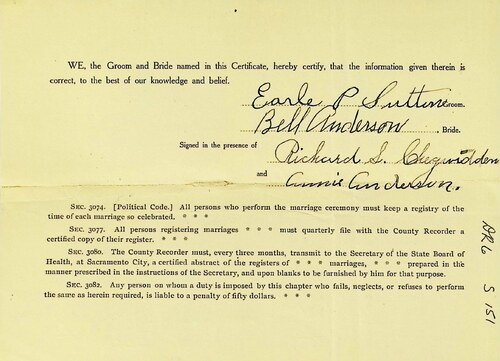 WE, the Groom and Bride named in this Certificate, hereby certify, that the information given therein is
correct, to the best of our knowledge and belief.
Earle P Sutton Groom.
Bell Anderson, Bride.
Signed in the presence of Richard S. Chegwidden
and Annie Anderson.
SEC. 3074. [Political Code.] All persons who perform the marriage ceremony must keep a registry of the
time of each marriage so celebrated. * * *
SEC. 3077. All persons registering marriages * * * must quarterly file with the County Recorder a
certified copy of their register. * * *
SEC. 3080. The County Recorder must, every three months, transmit to the Secretary of the State Board of
Health, at Sacramento City, a certified abstract of the registers of * * * marriages, * * * prepared in the
manner prescribed in the instructions of the Secretary, and upon blanks to be furnished by him for that purpose.
SEC. 3082. Any person on whom a duty is imposed by this chapter who fails, neglects, or refuses to perform
the same as herein required, is liable to a penalty of fifty dollars. * * *
S 151